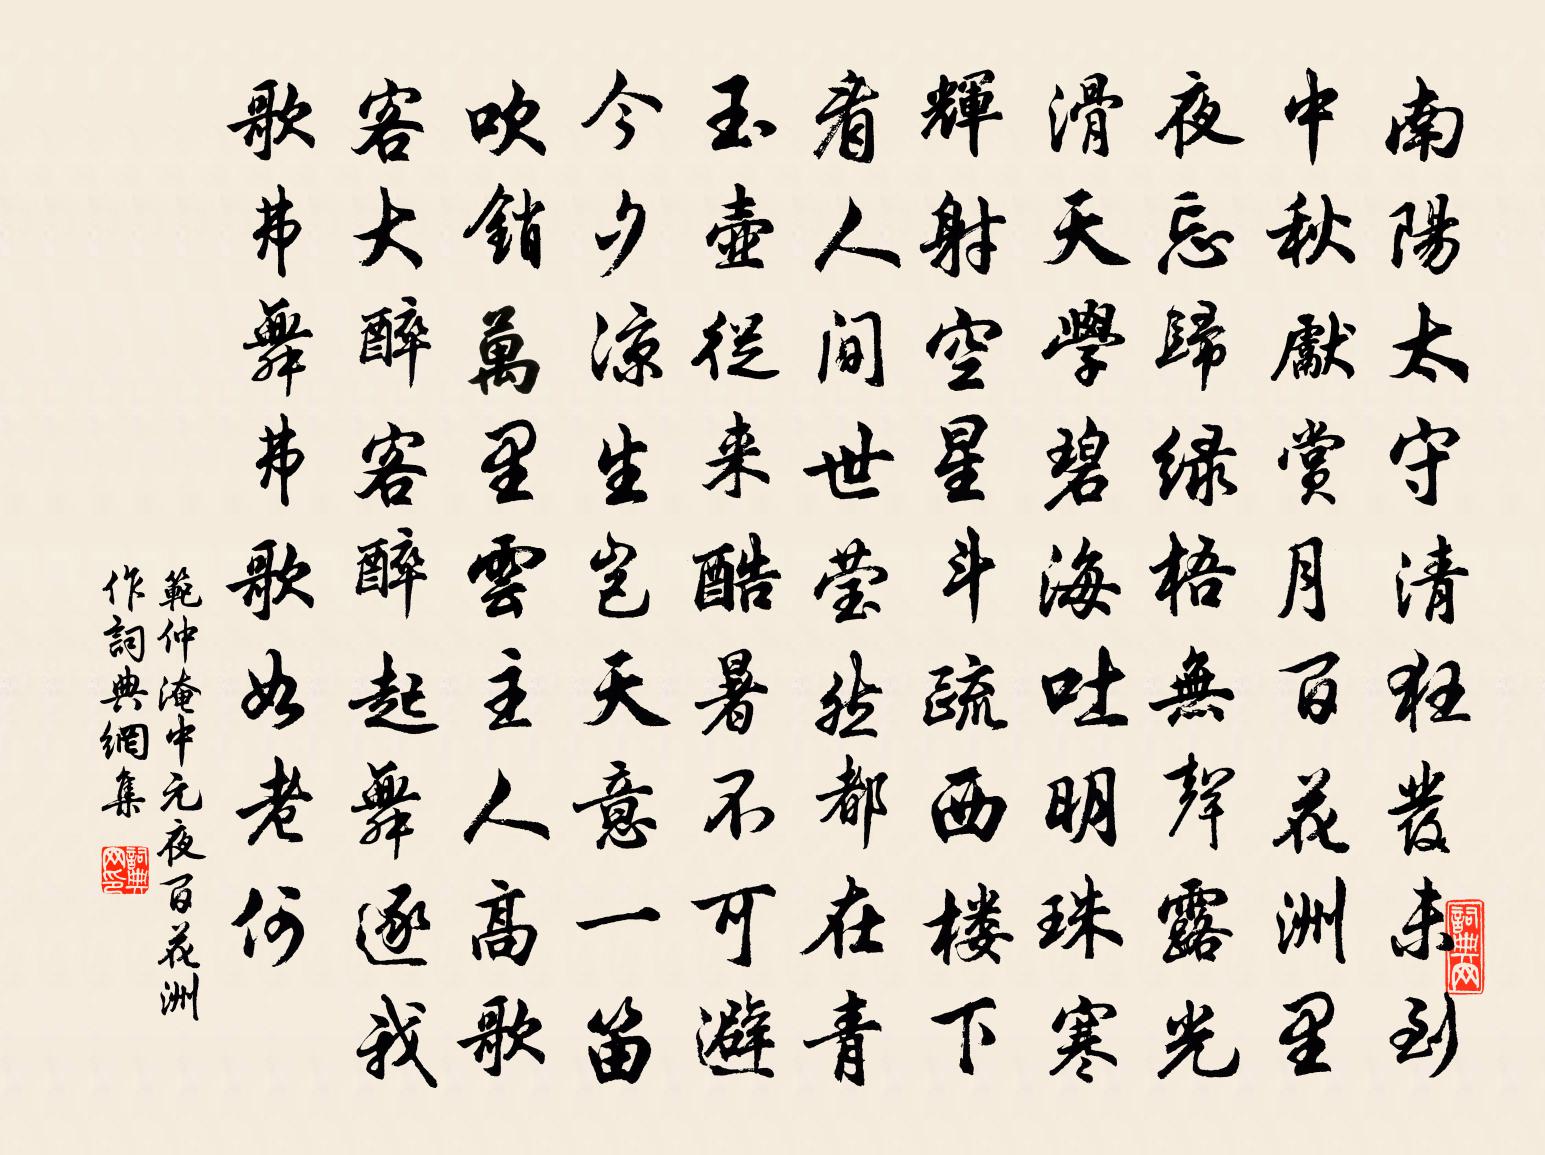 南陽太守清狂發未到
中秋獻賞月百花洲里
夜忘歸綠梧無聲露光
滑天學碧海吐明珠寒
輝射空星斗疏西樓下
看人間世瑩然都在青
玉壺從来酷暑不可避
今夕涼生豈天意一笛
吹銷萬里雲主人高歌
客大醉客醉起舞逐我
歌弗舞弗歌如老何
範仲淹中元夜百花洲
作詞典網集
詞典网印
詞典网